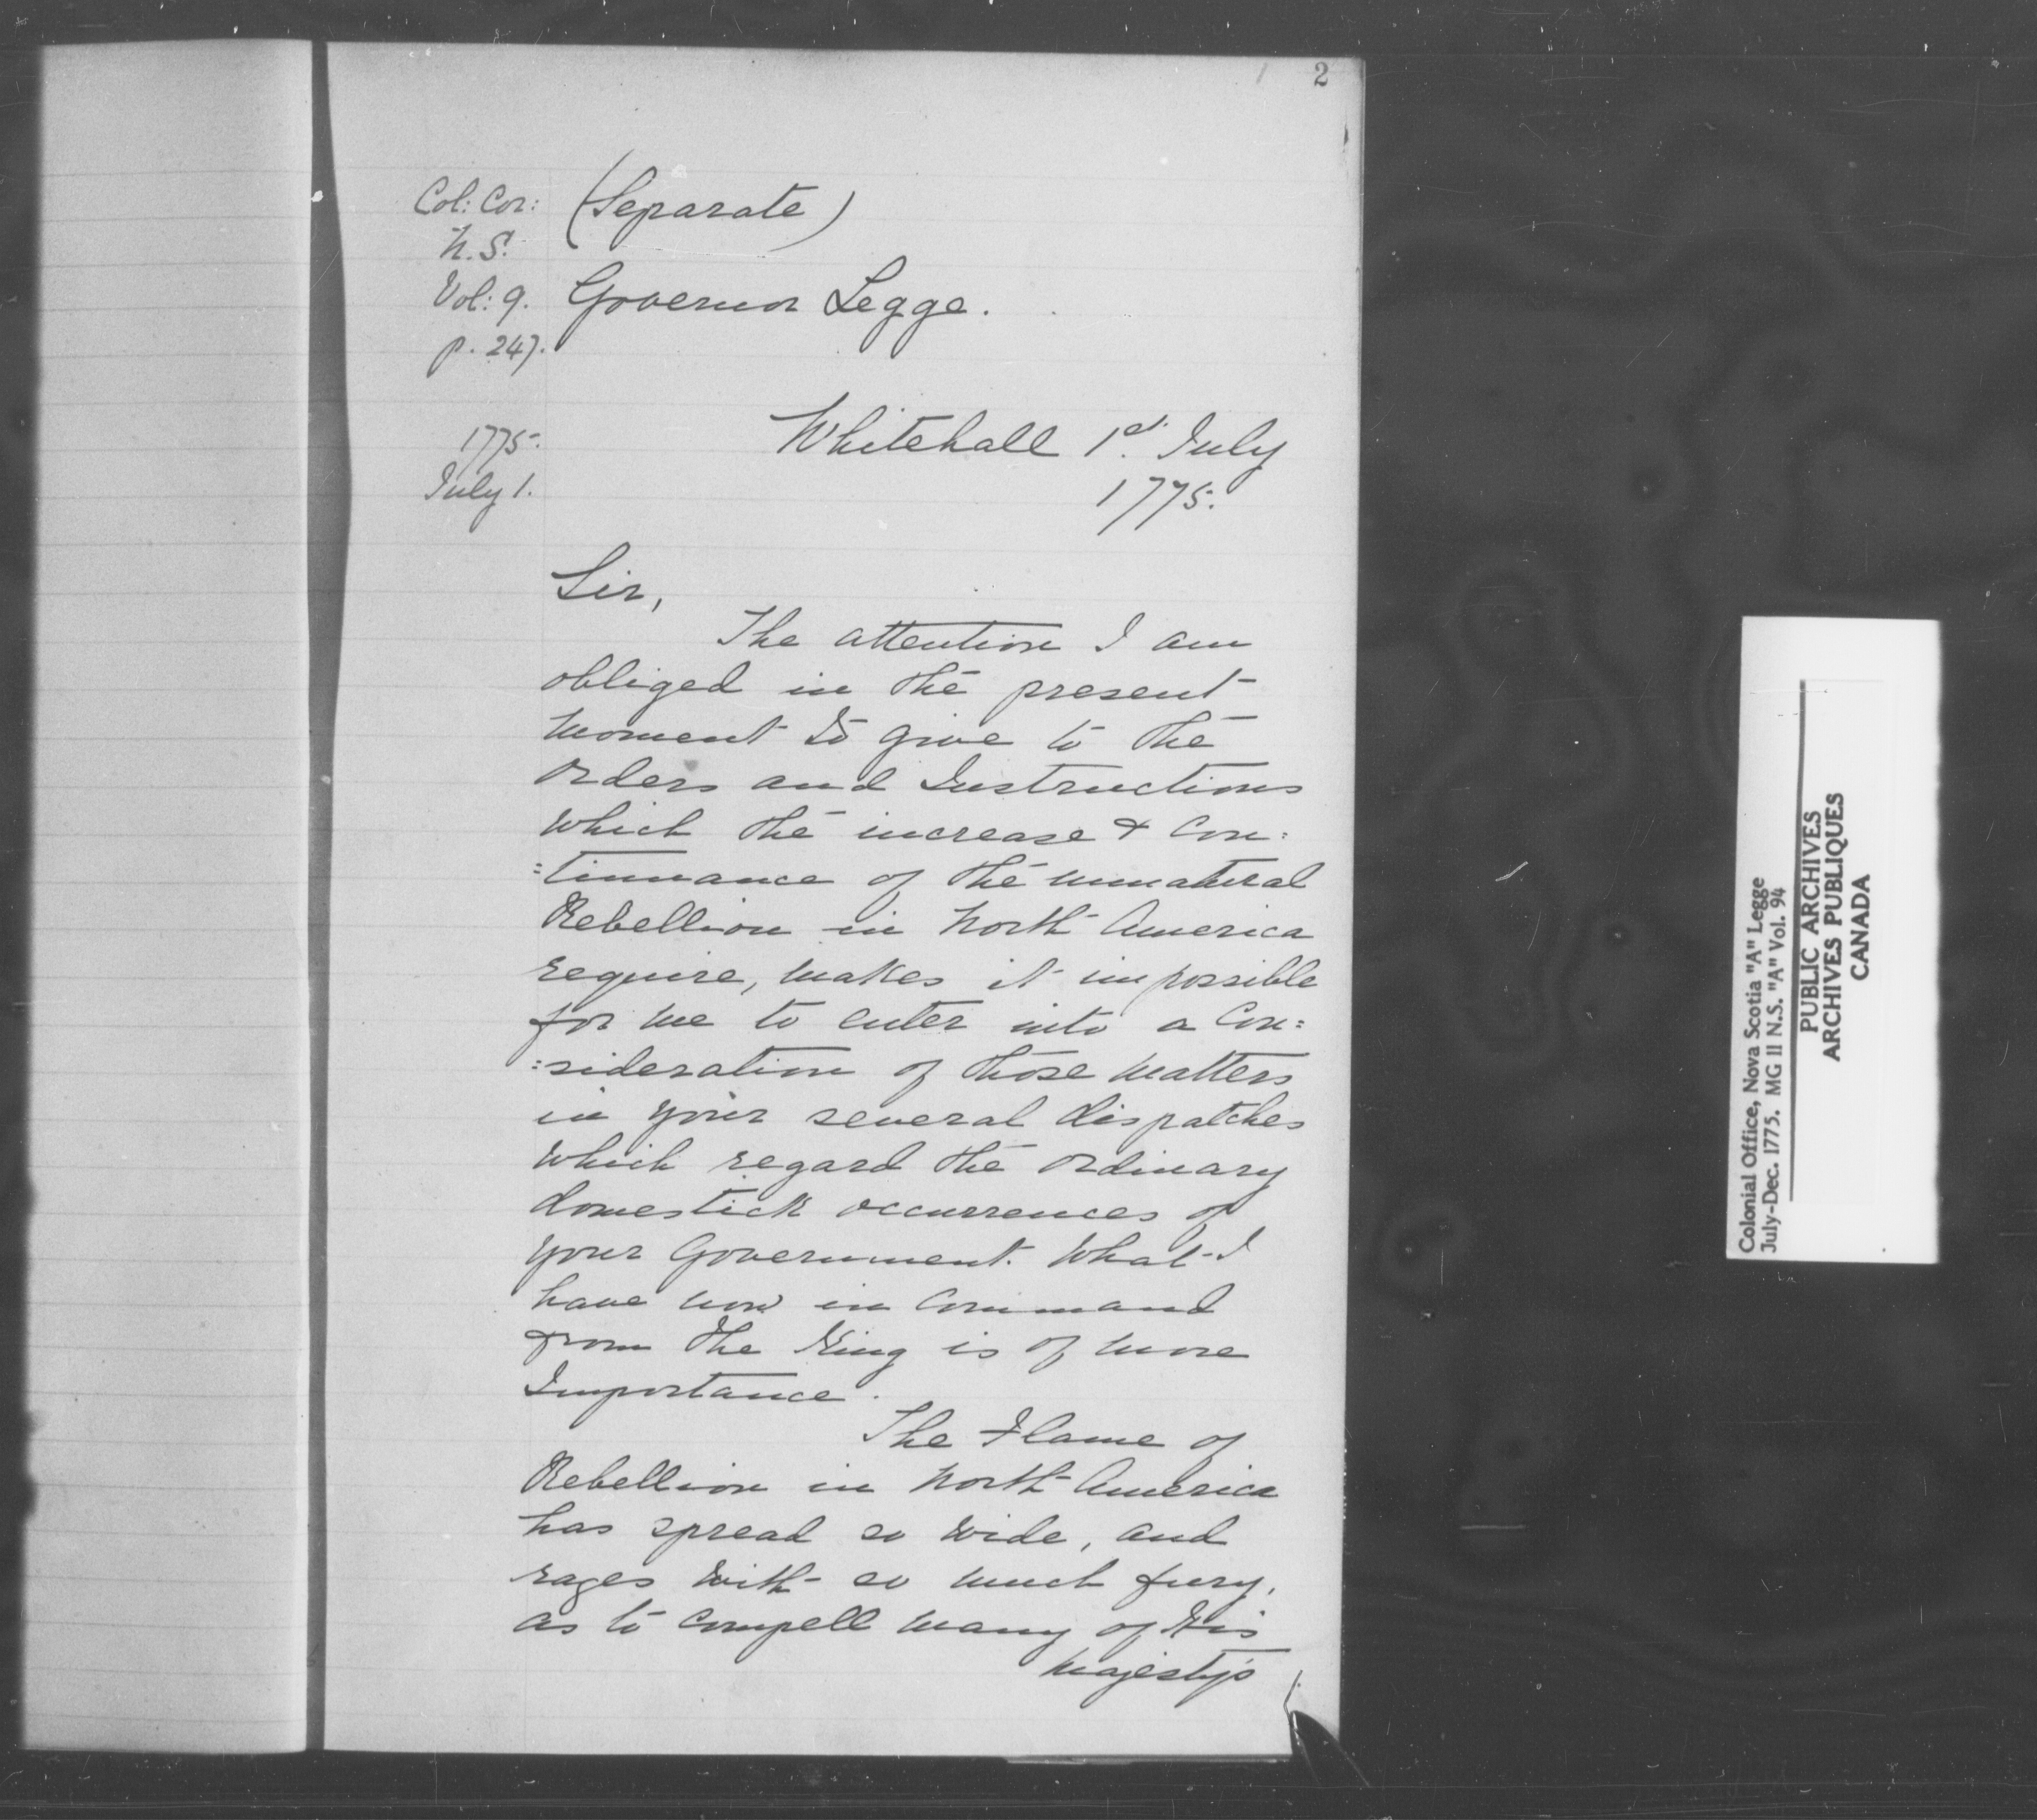 2
Col: Cor:
N. S.
Vol: 9.
p. 247.
(Separate)
Governor Legge.
1775.
July 1.
Whitehall 1st. July
1775.
Sir,
The attention I am
obliged in the present
moment to give to the
orders and Instructions
which the increase & Con:
:tinuance of the unnatural
Rebellion in North America
require, makes it impossible
for me to enter into a Con:
:sideration of those matters
in your several dispatches
which regard the ordinary
domestick occurrences of
your Government. What I
have now in Command
from the King is of more
Importance.
The Flame of
Rebellion in North America
has spread so wide, and
rages with so much fury,
as to compell many of His
Majesty's
Colonial Office, Nova Scotia "A" Legge
July-Dec. 1775. MG 11 N.S. "A" Vol. 94
PUBLIC ARCHIVES
ARCHIVES PUBLIQUES
CANADA